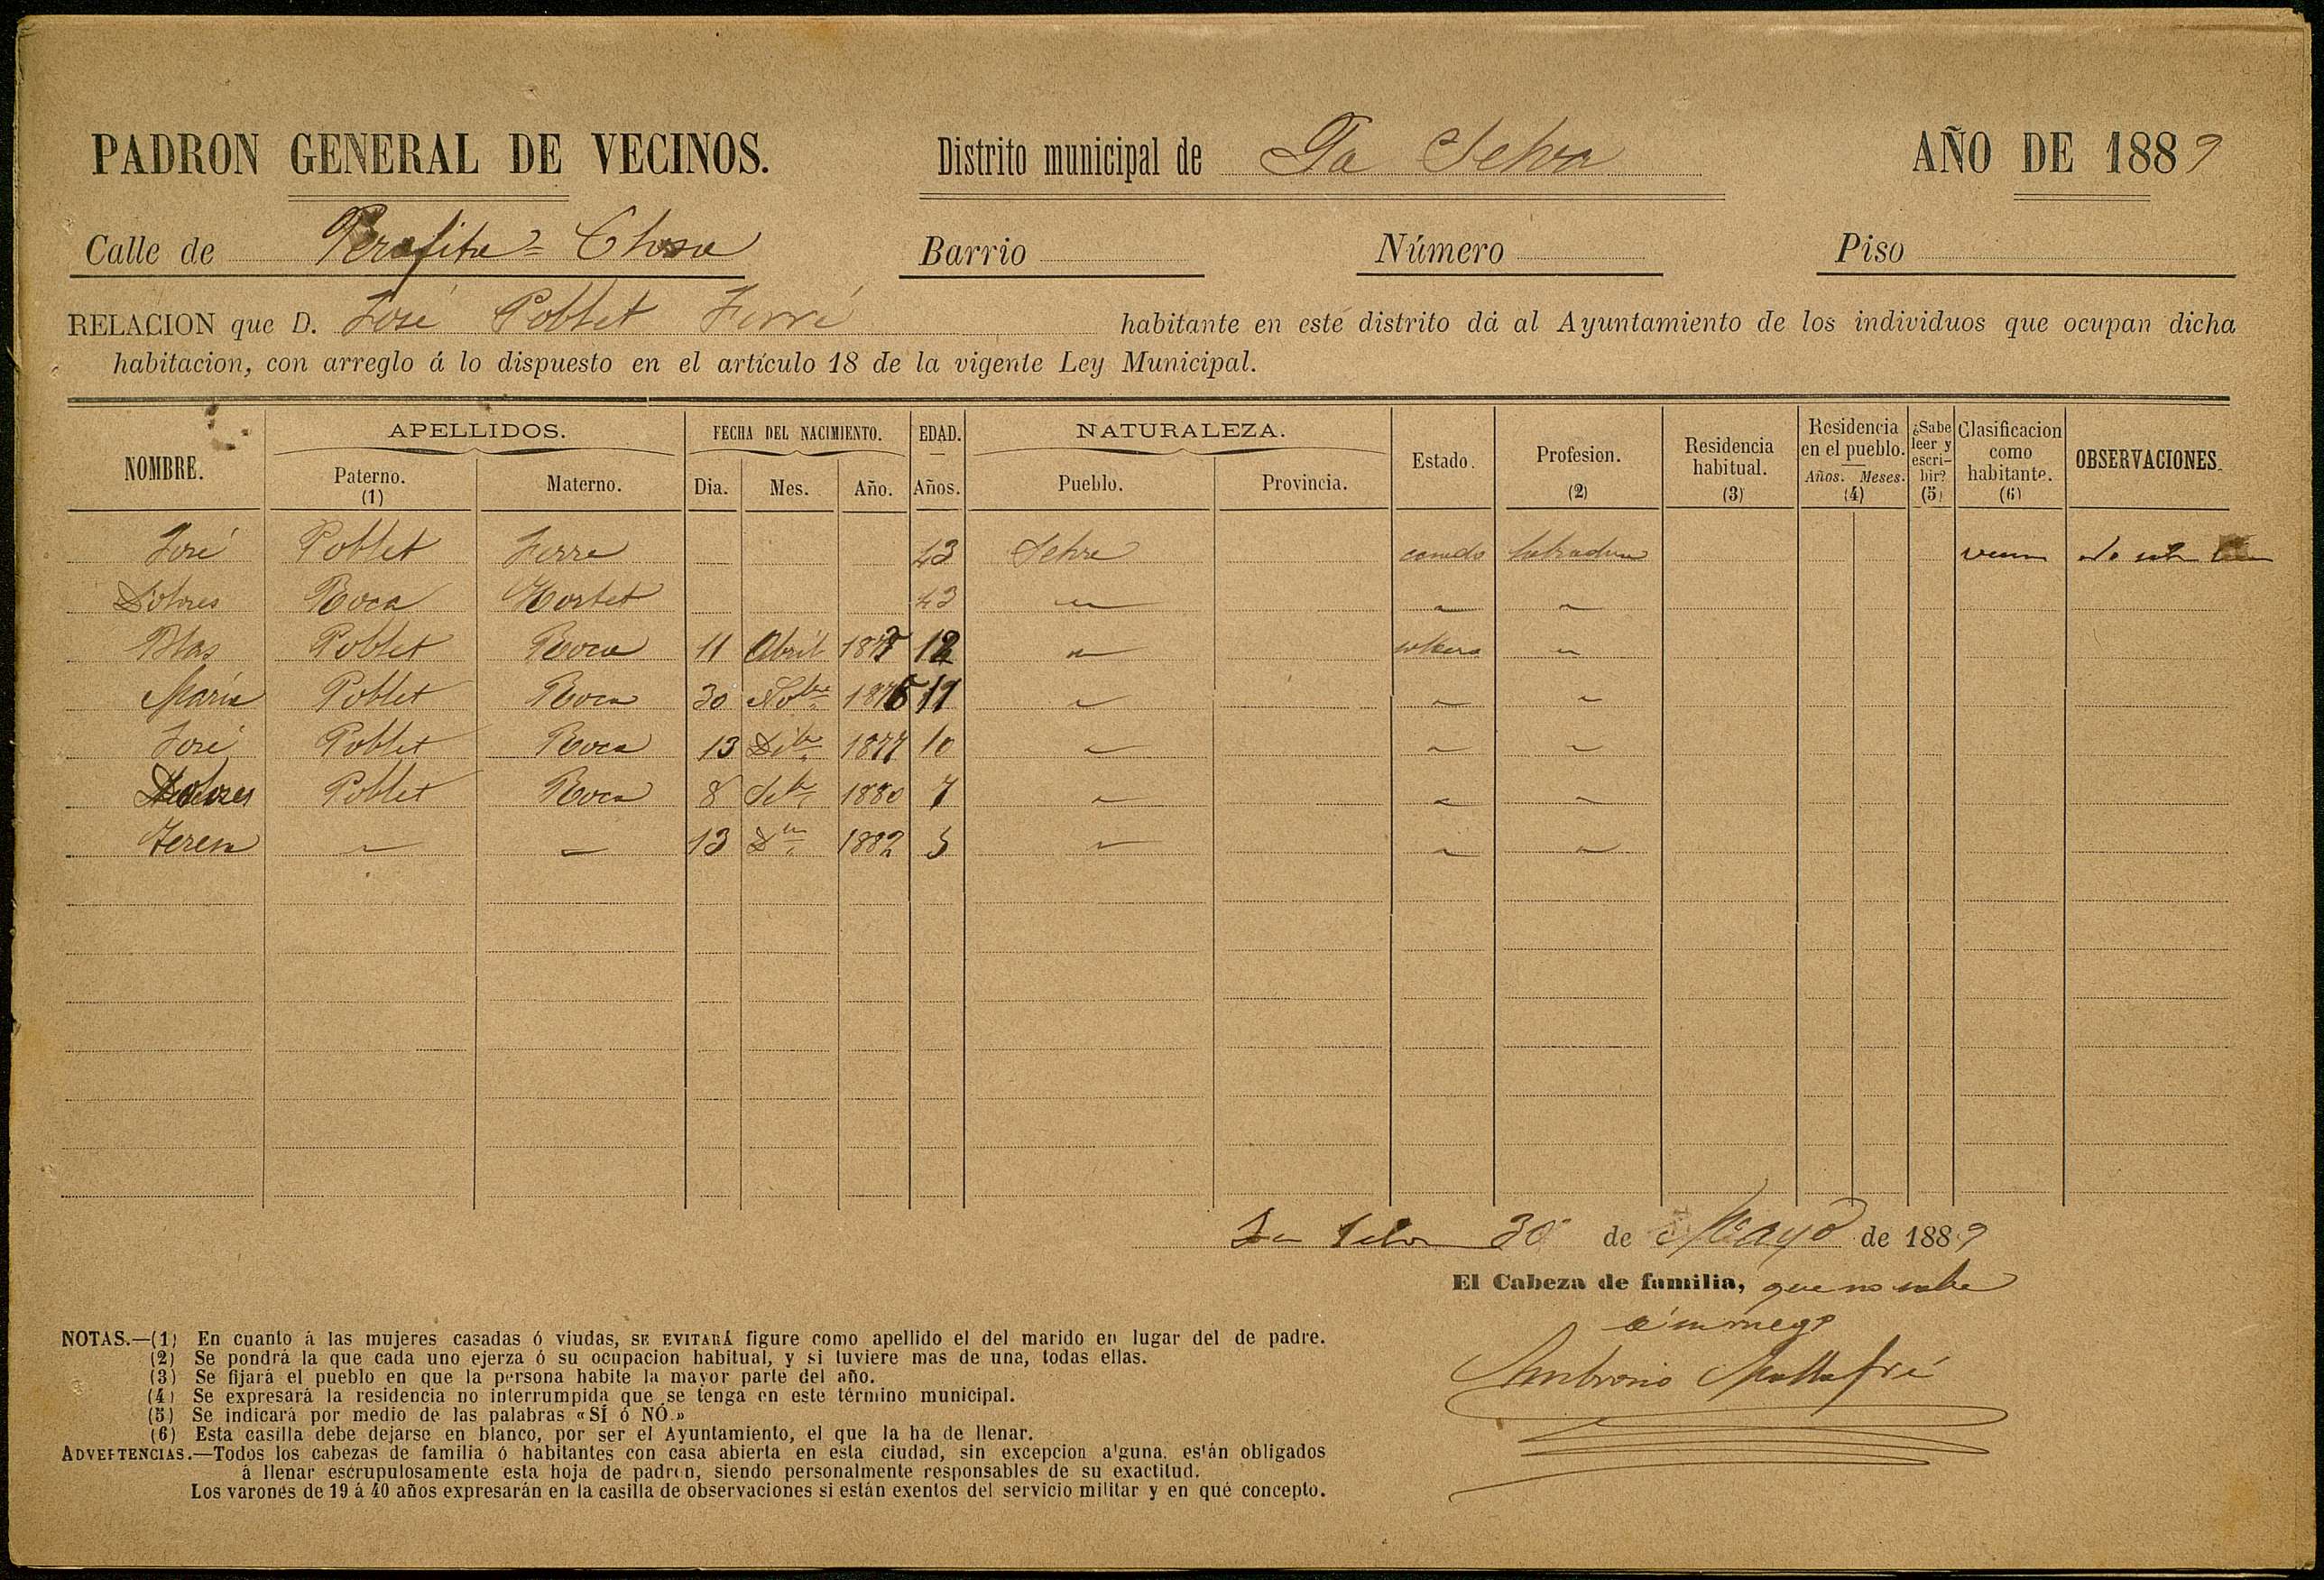 PADRON GENERAL DE VECINOS. Distrito municipal de La Selva AÑO DE 1889
Calle de Perafita = Closa Barrio Número Piso
RELACION que D. José Poblet Ferré habitante en este distrito dá al Ayuntamiento de los individuos que ocupan dicha
habitacion, con arreglo á lo dispuesto en el artículo 18 de la vigente Ley Municipal.
NOMBRE. APELLIDOS. Paterno. (1) Materno. FECHA DEL NACIMIENTO. Dia. Mes. Año. EDAD. Años. NATURALEZA. Pueblo. Provincia. Estado. Profesion. (2) Residencia habitual. (3) Residencia en el pueblo. Años. Meses. (4) ¿Sabe leer y escribir? (5) Clasificacion como habitante. (6) OBSERVACIONES.
José Poblet Ferre 43 Selva casado labrador vecino
Dolores Roca Mortet 43 " " "
Blas Poblet Roca 11 Abril 12 " soltero "
Maria Poblet Roca 30 Nobre 1876 11 " " "
José Poblet Roca 13 Dibre 1877 10 " " "
Dolores Poblet Roca 8 Sebre 1880 7 " " "
Teresa " " 13 Dre 1882 5 " " "
La Selva 30 de Mayo de 1889
El Cabeza de familia, que no sabe
á su ruego
Ambrosio Mallafré
NOTAS.—(1) En cuanto á las mujeres casadas ó viudas, SE EVITARÁ figure como apellido el del marido en lugar del de padre.
(2) Se pondrá la que cada uno ejerza ó su ocupacion habitual, y si tuviere mas de una, todas ellas.
(3) Se fijará el pueblo en que la persona habite la mayor parte del año.
(4) Se expresará la residencia no interrumpida que se tenga en este término municipal.
(5) Se indicará por medio de las palabras «SÍ ó NÓ.»
(6) Esta casilla debe dejarse en blanco, por ser el Ayuntamiento, el que la ha de llenar.
ADVERTENCIAS.—Todos los cabezas de familia ó habitantes con casa abierta en esta ciudad, sin excepcion alguna. están obligados
á llenar escrupulosamente esta hoja de padron, siendo personalmente responsables de su exactitud.
Los varones de 19 á 40 años expresarán en la casilla de observaciones si están exentos del servicio militar y en qué concepto.